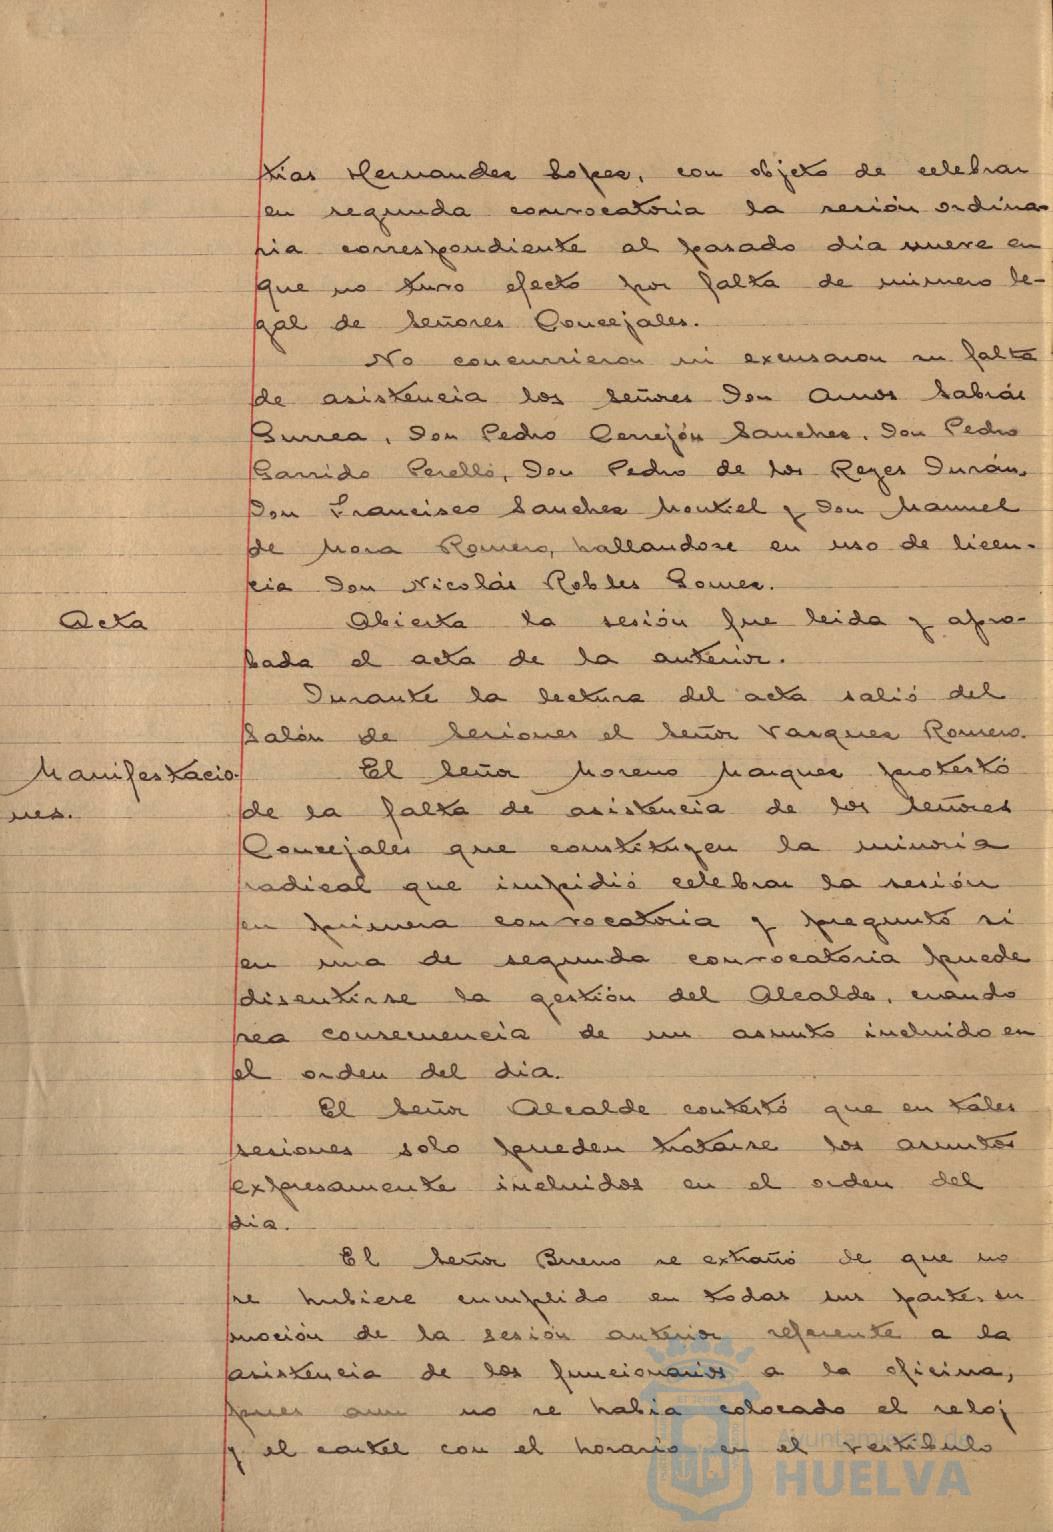 tias Hernandez Lopez, con objeto de celebrar
en segunda convocatoria la sesión ordina-
ria correspondiente al pasado dia nueve en
que no tuvo efecto por falta de número le-
gal de Señores Concejales.
No concurrieron ni excusaron su falta
de asistencia los Señores Don Amos Sabrás
Gurrea, Don Pedro Cerrejón Sanchez, Don Pedro
Garrido Perelló, Don Pedro de los Reyes Durán,
Don Francisco Sanchez Montiel y Don Manuel
de Mora Romero, hallandose en uso de licen-
cia Don Nicolás Robles Gomez.
Acta
Abierta la sesión fue leida y apro-
bada el acta de la anterior.
Durante la lectura del acta salió del
Salón de Sesiones el Señor Vazquez Romero.
Manifestacio-
nes.
El Señor Moreno Marquez protestó
de la falta de asistencia de los Señores
Concejales que constituyen la minoria
radical que impidió celebrar la sesión
en primera convocatoria y preguntó si
en una de segunda convocatoria puede
discutirse la gestión del Alcalde, cuando
sea consecuencia de un asunto incluido en
el orden del dia.
El Señor Alcalde contestó que en tales
sesiones solo pueden tratarse los asuntos
expresamente incluidos en el orden del
dia.
El Señor Bueno se extrañó de que no
se hubiese cumplido en todas sus partes su
moción de la sesión anterior referente a la
asistencia de los funcionarios a la oficina,
pues aun no se habia colocado el reloj
y el cartel con el horario en el vestibulo
Ayuntamiento de
HUELVA